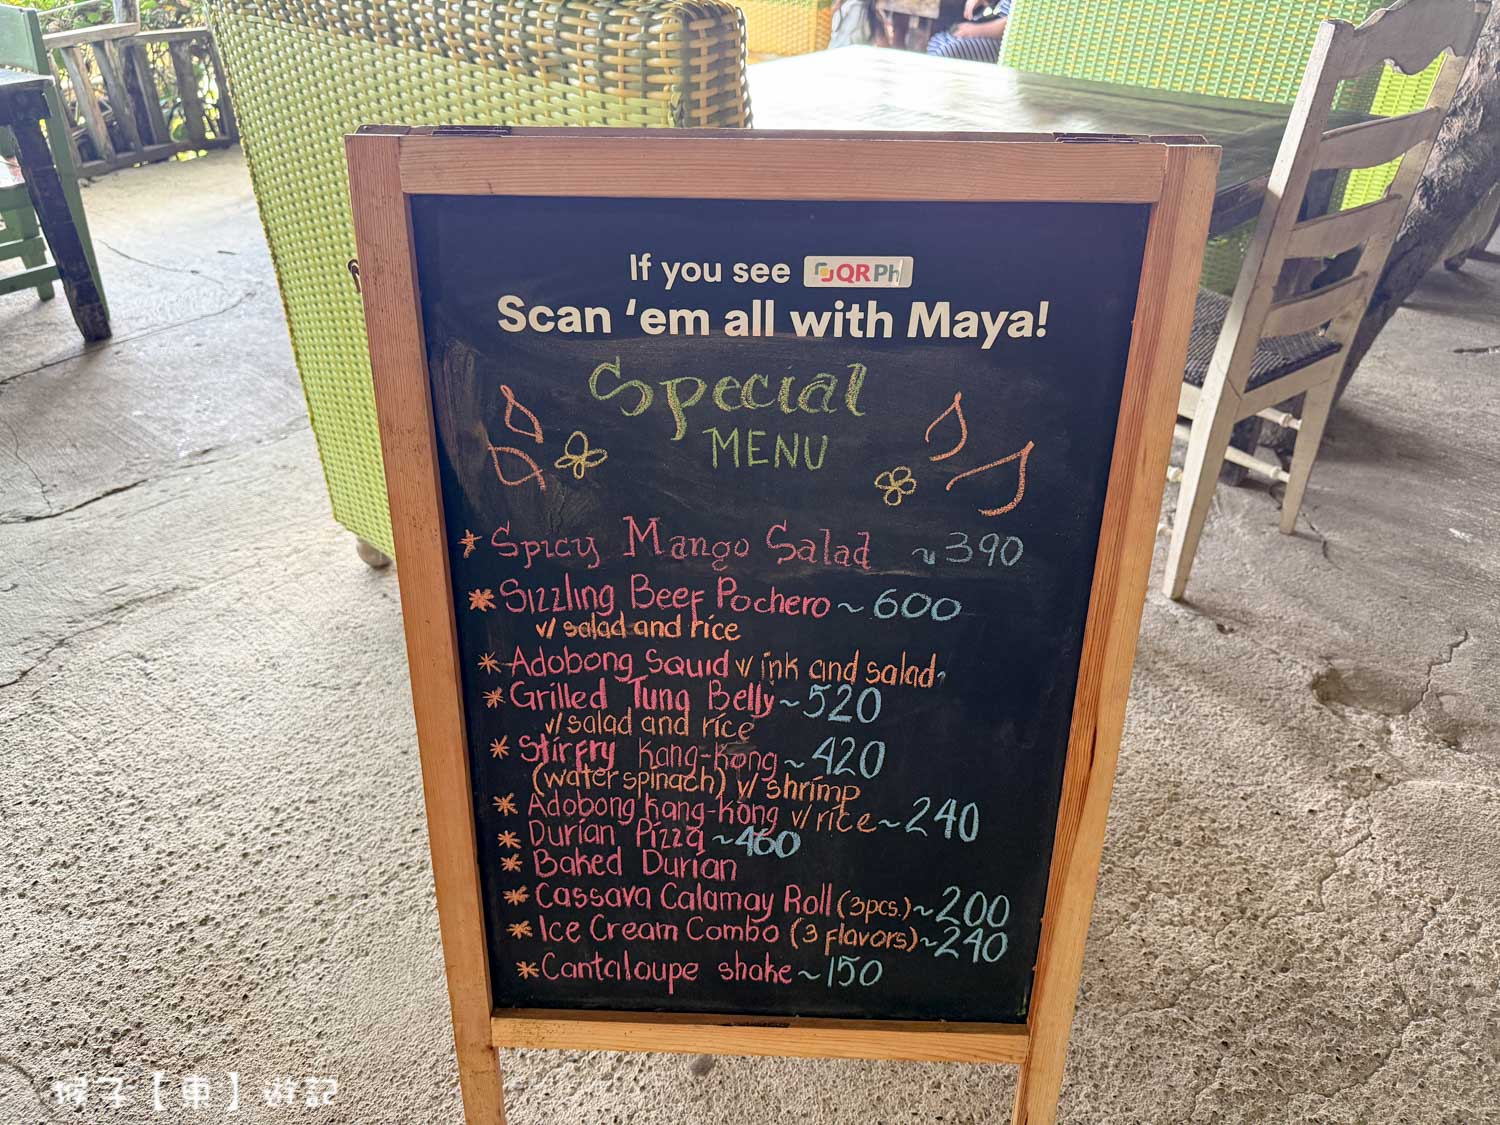 If you see QR Ph
Scan ‘em all with Maya!
Special
MENU
* Spicy Mango Salad ~390
* Sizzling Beef Pochero ~ 600
w/ salad and rice
* Adobong Squid w/ ink and salad
* Grilled Tuna Belly ~520
w/ salad and rice
* Stirfry Kang-Kong ~ 420
(water spinach) w/ shrimp
* Adobong Kang-Kong w/ rice ~240
* Durian Pizza ~460
* Baked Durian
* Cassava Calamay Roll (3pcs.) ~200
* Ice Cream Combo (3 flavors) ~240
* Cantaloupe shake ~150
猴子【車】遊記